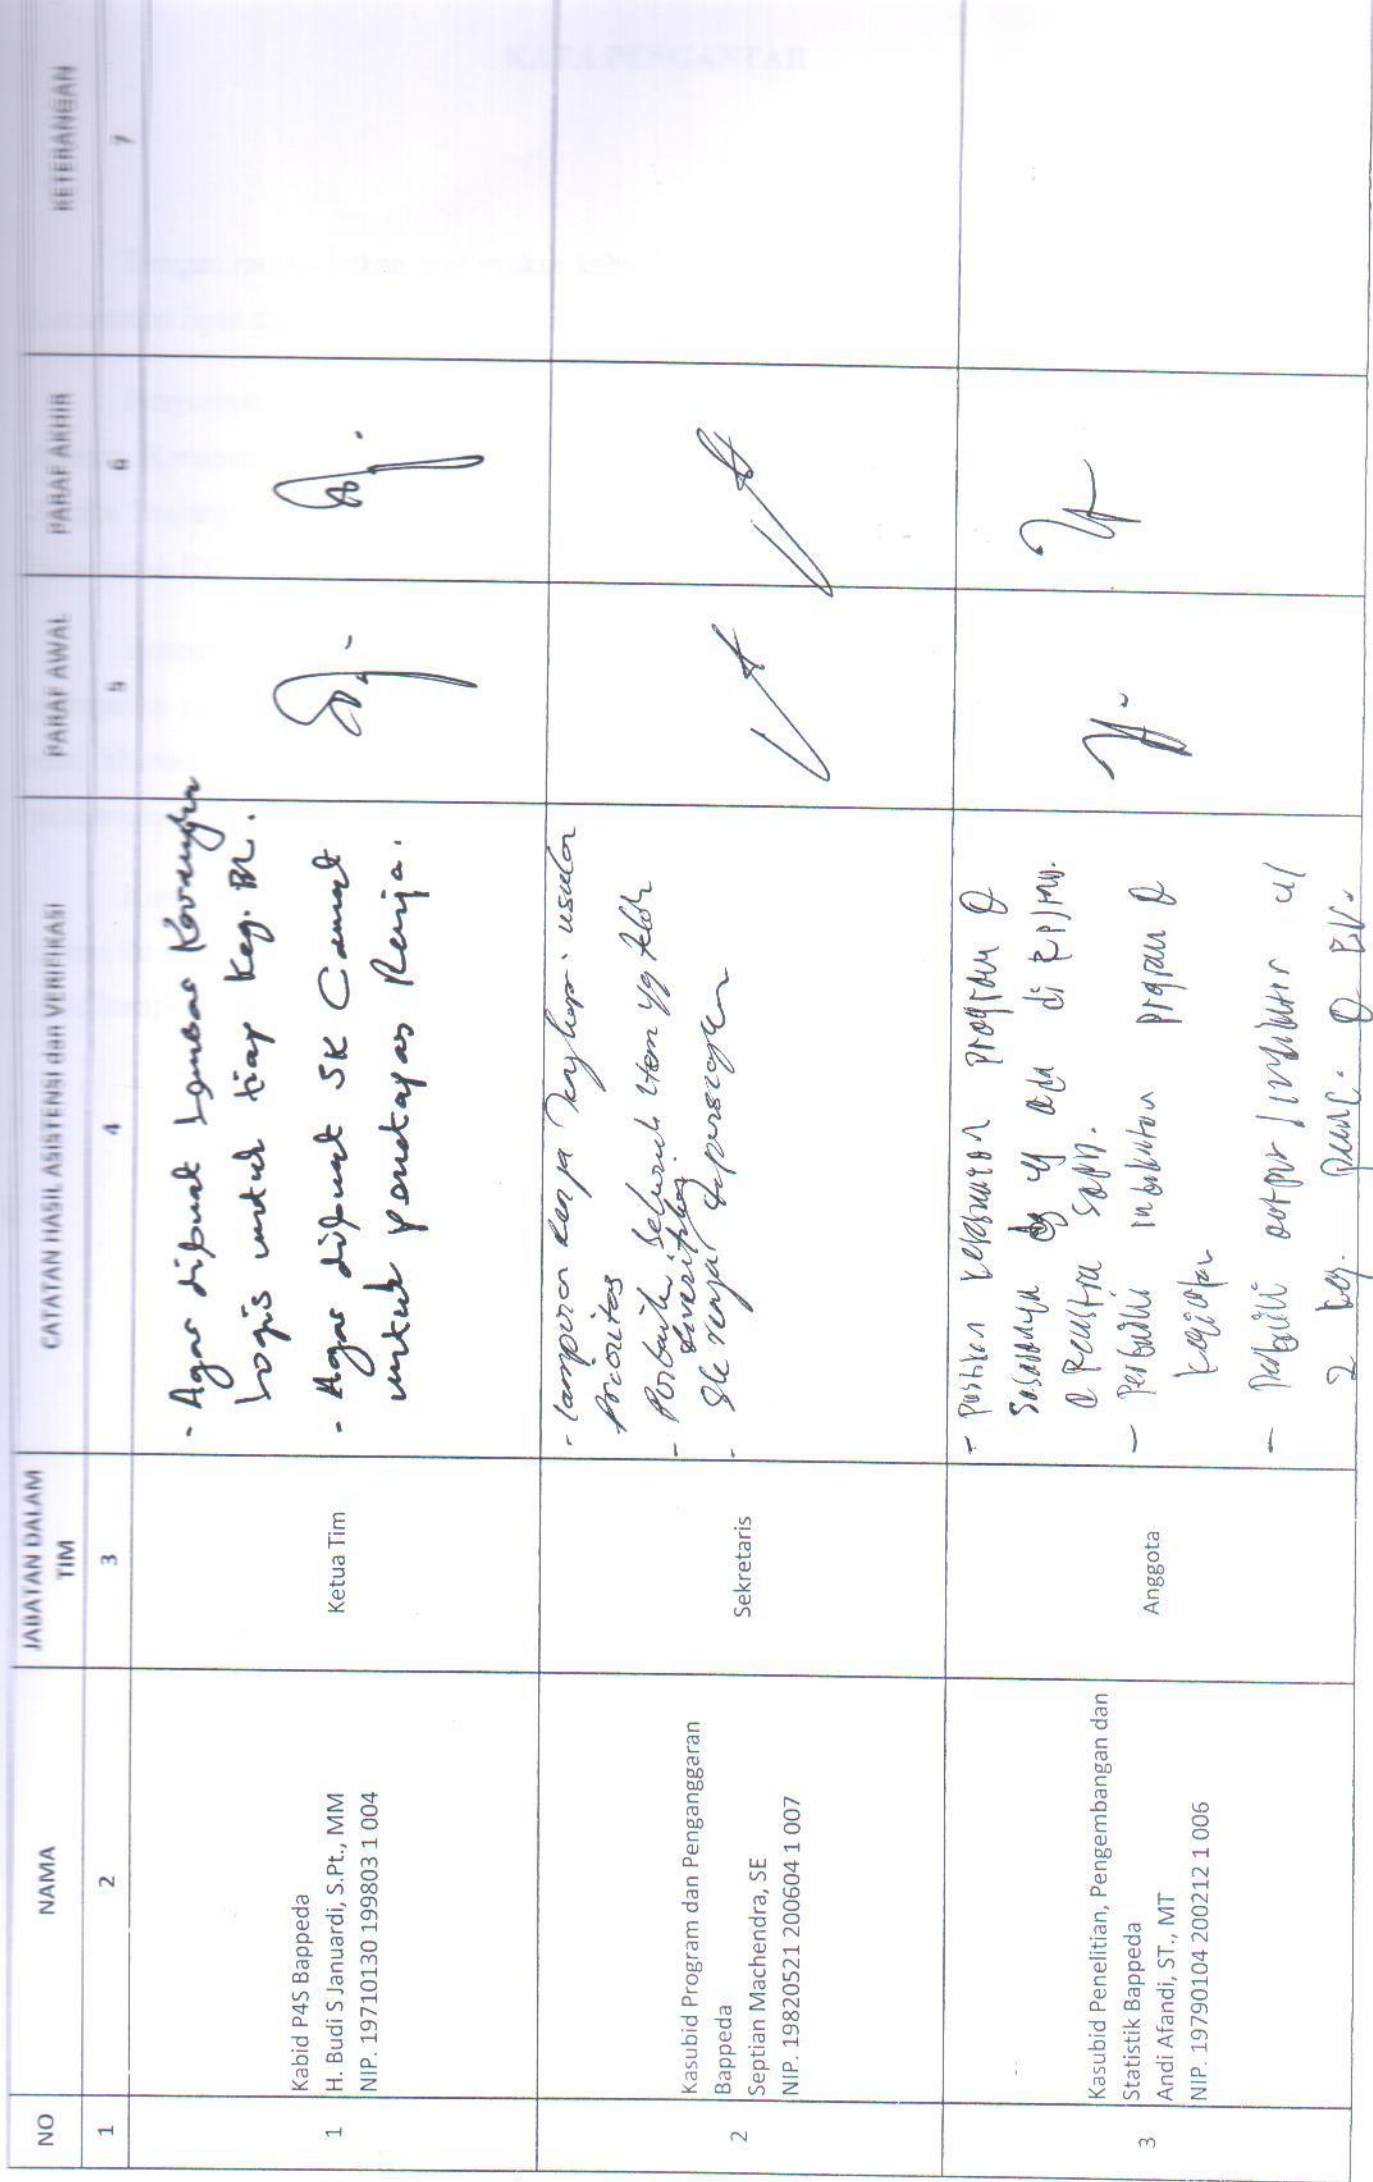 KATA PENGANTAR
NO
NAMA
JABATAN DALAM
TIM
CATATAN HASIL ASISTENSI dan VERIFIKASI
PARAF AWAL
PARAF AKHIR
KETERANGAN
1
2
3
4
5
6
7
1
Kabid P4S Bappeda
H. Budi S Januardi, S.Pt., MM
NIP. 19710130 199803 1 004
Ketua Tim
- Agar dibuat lembar Kerangka
Logis untuk tiap Keg. BL.
- Agar dibuat SK Camat
untuk penetapan Renja.
2
Kasubid Program dan Penganggaran
Bappeda
Septian Machendra, SE
NIP. 19820521 200604 1 007
Sekretaris
- lampiran renja dilengkapi usulan
prioritas
- Perbaiki seluruh item yg telah
diverifikasi
- SK renja dipersiapkan
3
Kasubid Penelitian, Pengembangan dan
Statistik Bappeda
Andi Afandi, ST., MT
NIP. 19790104 200212 1 006
Anggota
- Pastikan kesesuaian program &
Sasarannya yg ada di RPJMD.
& Renstra SKPD.
- Perbaiki indikator program &
kegiatan
- Perbaiki output / indikator u/
2 keg.